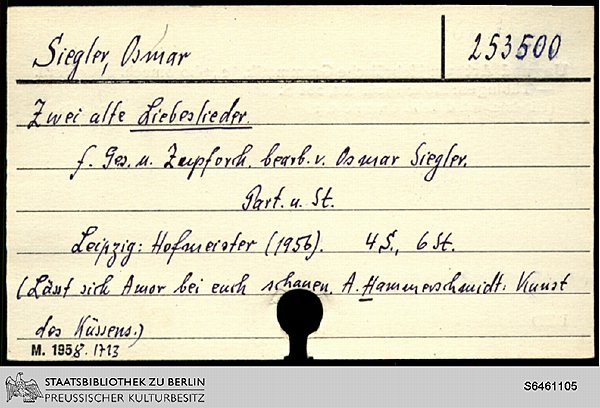 Siegler, Osmar
253500
Zwei alte Liebeslieder.
f. Ges. u. Zupforch. bearb. v. Osmar Siegler.
Part. u. St.
Leipzig: Hofmeister (1956). 4 S., 6 St.
(Lässt sich Amor bei euch schauen, A. Hammerschmidt: Kunst
des Küssens.)
M. 1958. 1713
STAATSBIBLIOTHEK ZU BERLIN
PREUSSISCHER KULTURBESITZ
S6461105